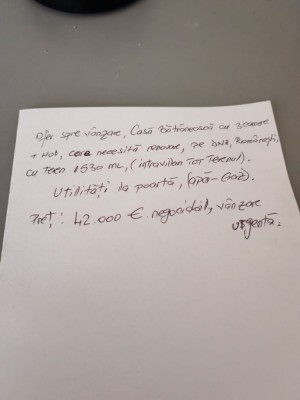 Ofer spre vânzare, Casă Bătrânească cu 3 camere
+ Hol, care necesită renovare, pe DN1, Românești,
cu teren 1530 mL, (intravilan TOT Terenul).
Utilități la poartă, (apă-Gaz).
Preț: 42.000 €. negociabil, vânzare
urgentă.